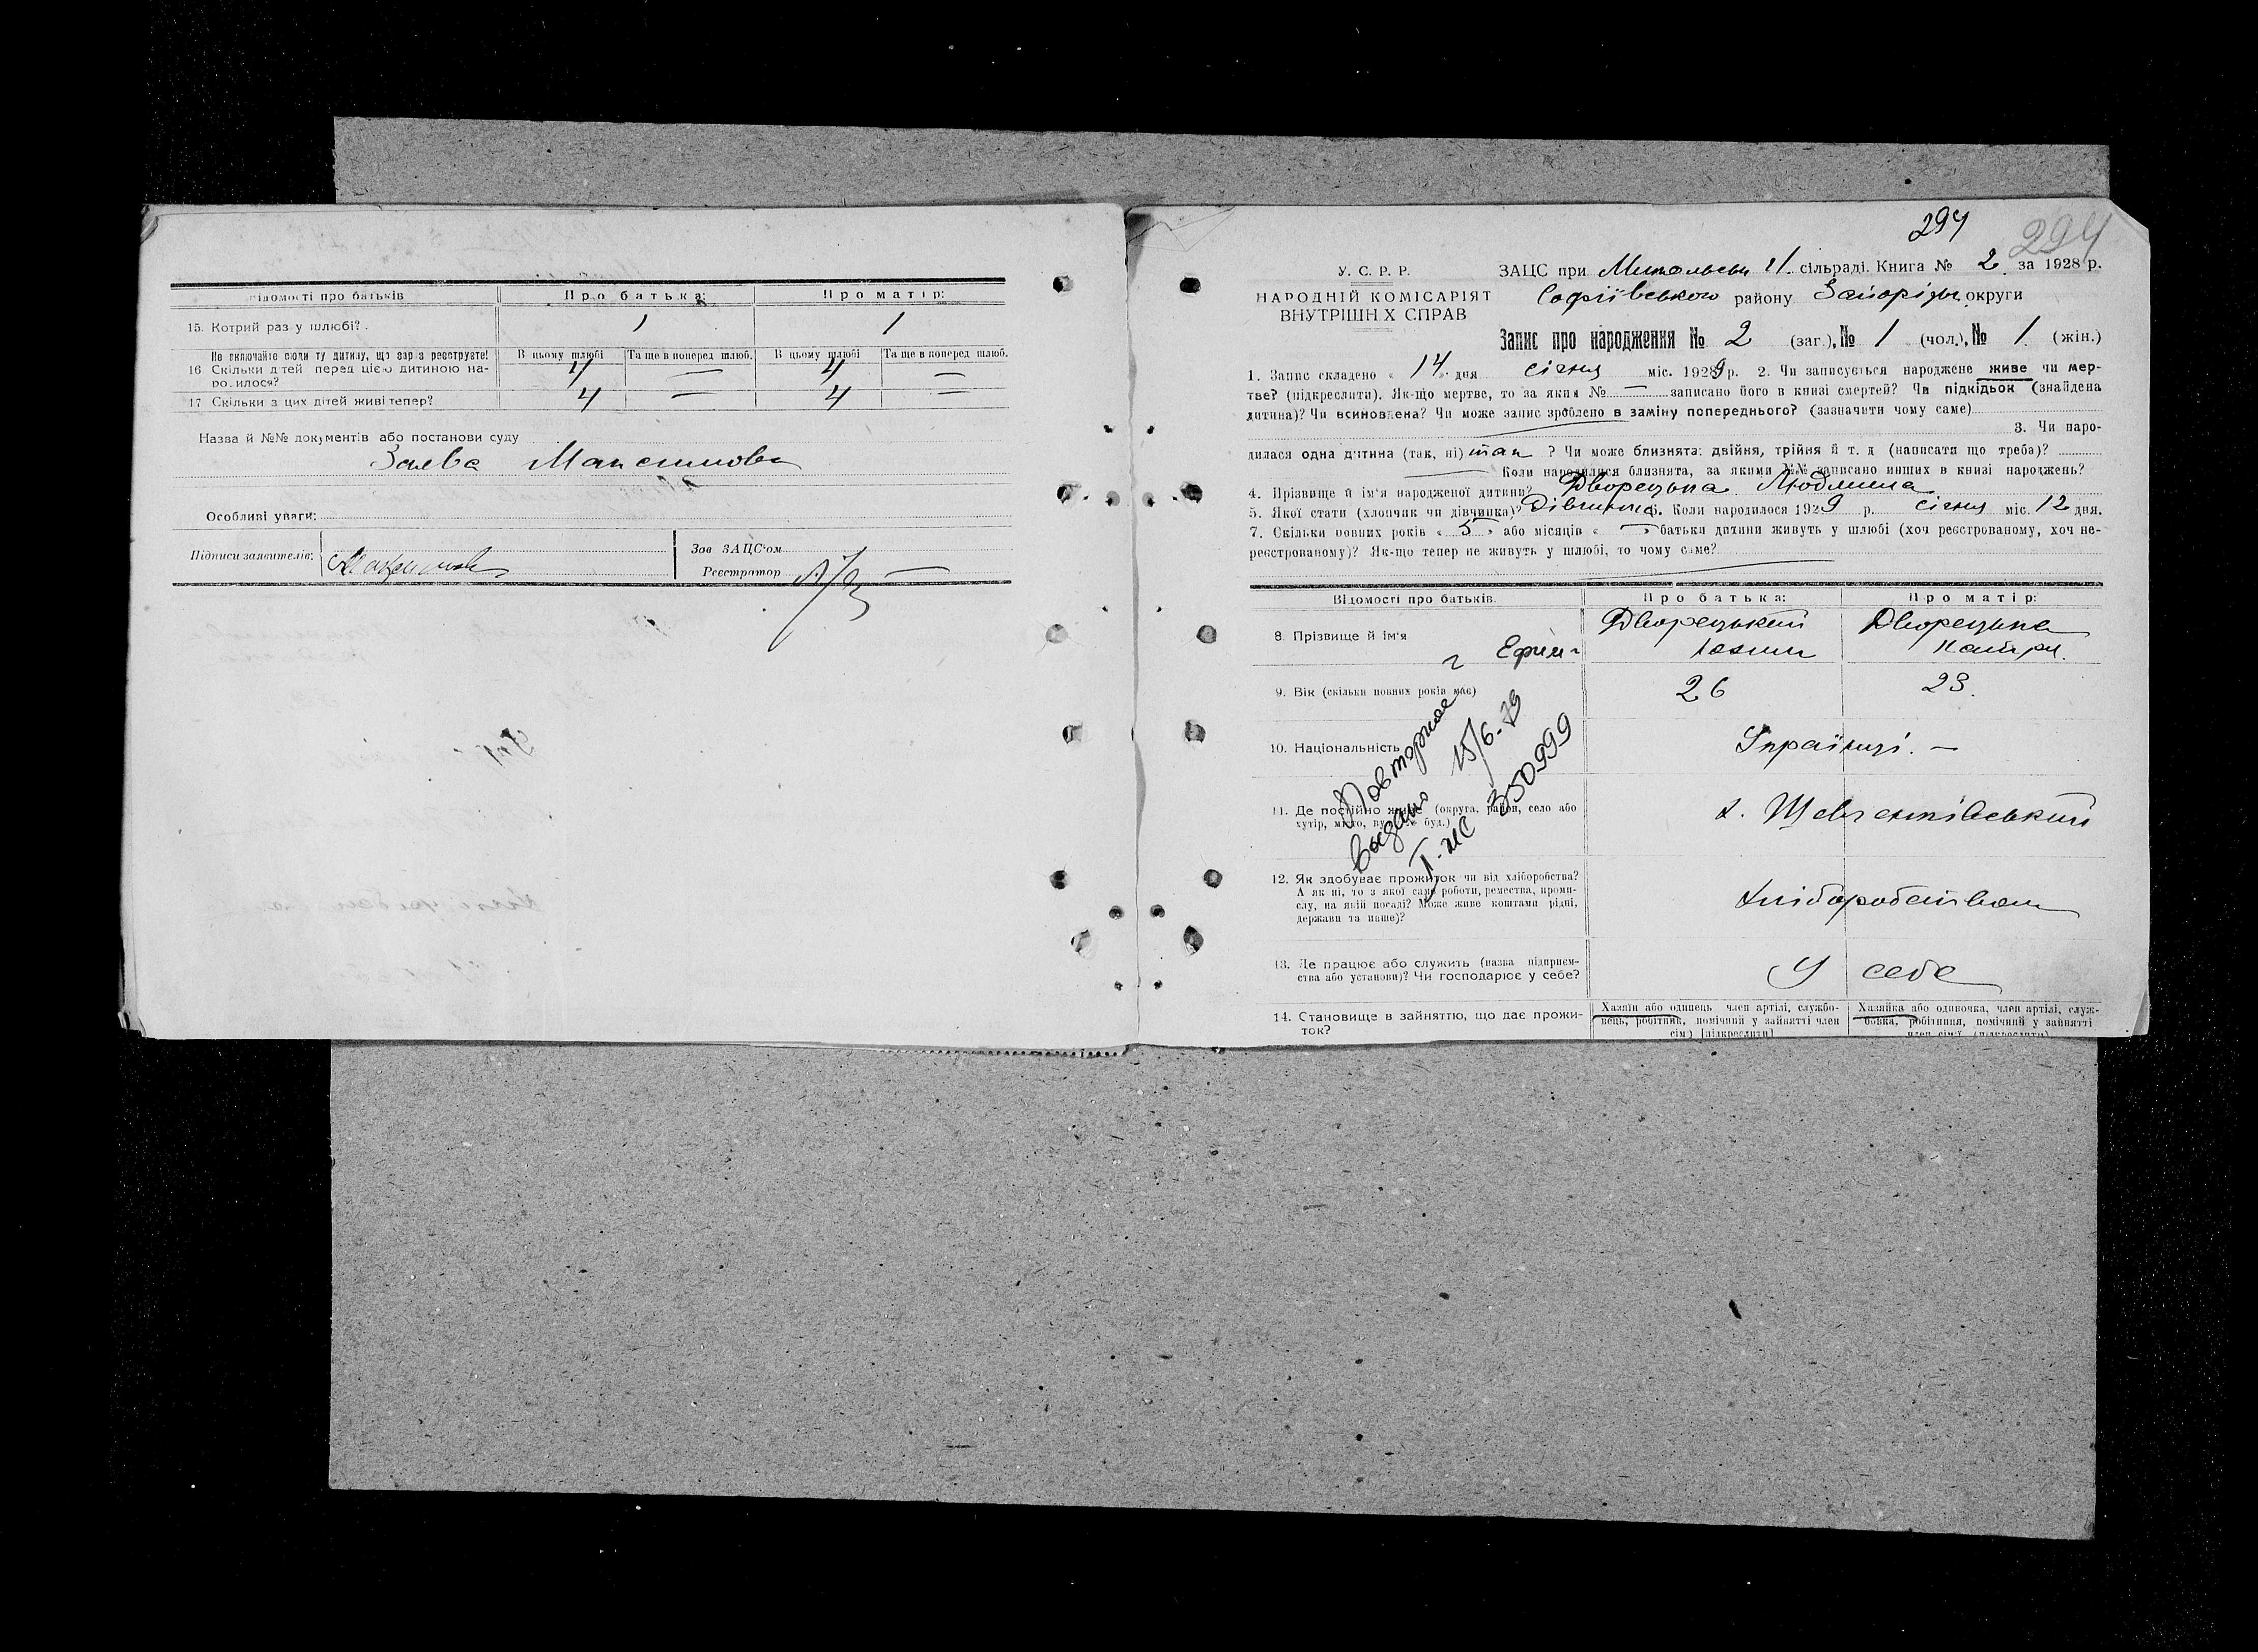 Відомості про батьків
Про батька:
Про матір:
15. Котрий раз у шлюбі?
1
1
Не включайте сюди ту дитину, що зараз реєструєте!
В цьому шлюбі
Та ще в поперед. шлюб.
В цьому шлюбі
Та ще в поперед. шлюб.
16 Скільки дітей перед цією дитиною на-
родилося?
4 — 4 —
17 Скільки з цих дітей живі тепер?
4 — 4 —
Назва й №№ документів або постанови суду
Заява Максимова
Особливі уваги:
Підписи заявителів:
Зав ЗАЦС'ом
Реєстратор
294
294
У. С. Р. Р.
НАРОДНІЙ КОМІСАРІЯТ
ВНУТРІШНІХ СПРАВ
ЗАЦС при сільраді. Книга № 2 за 1928 р.
Софіївського району Запорізьк. округи
Запис про народження № 2 (заг.), № 1 (чол.), № 1 (жін.)
1. Запис складено « 14 » дня січня міс. 1929 р. 2. Чи записується народжене живе чи мер-
тве? (підкреслити). Як-що мертве, то за яким № — записано його в книзі смертей? Чи підкідьок (знайдена
дитина)? Чи всиновлена? Чи може запис зроблено в заміну попереднього? (зазначити чому саме)
3. Чи наро-
дилася одна дитина (так, ні) так ? Чи може близнята: двійня, трійня й т. д (написати що треба)?
Коли народилися близнята, за якими №№ записано инших в книзі народжень?
4. Прізвище й ім'я народженої дитини? Дворецька Людмила
5. Якої стати (хлопчик чи дівчинка)? Дівчинка 6. Коли народилося 1929 р. січня міс. 12 дня.
7. Скільки повних років « 5 » або місяців « — » батьки дитини живуть у шлюбі (хоч реєстрованому, хоч не-
реєстрованому)? Як-що тепер не живуть у шлюбі, то чому саме?
Відомості про батьків.
Про батька:
Про матір:
8. Прізвище й ім'я
Дворецький
Дворецька
Катери.
9. Вік (скільки повних років має)
26
23.
10. Національність
Українці. —
11. Де постійно живе (округа, район, село або
хутір, місто, вул. № буд.)
х. Шевченківський
Повторное
выдано 15/6-79
350999
12. Як здобуває прожиток чи від хліборобства?
А як ні, то з якої саме роботи, ремества, проми-
слу, на якій посаді? Може живе коштами рідні,
держави та инше)?
Хліборобством
13. Де працює або служить (назва підприєм-
ства або установи)? Чи господарює у себе?
У себе
14. Становище в зайняттю, що дає прожи-
ток?
Хазяїн або одинець член артілі, службо-
вець, робітник, помічний у зайнятті член
сім'ї (підкреслити)
Хазяйка або одиночка, член артілі, служ-
бовка, робітниця, помічний у зайнятті
член сім'ї (підкреслити)